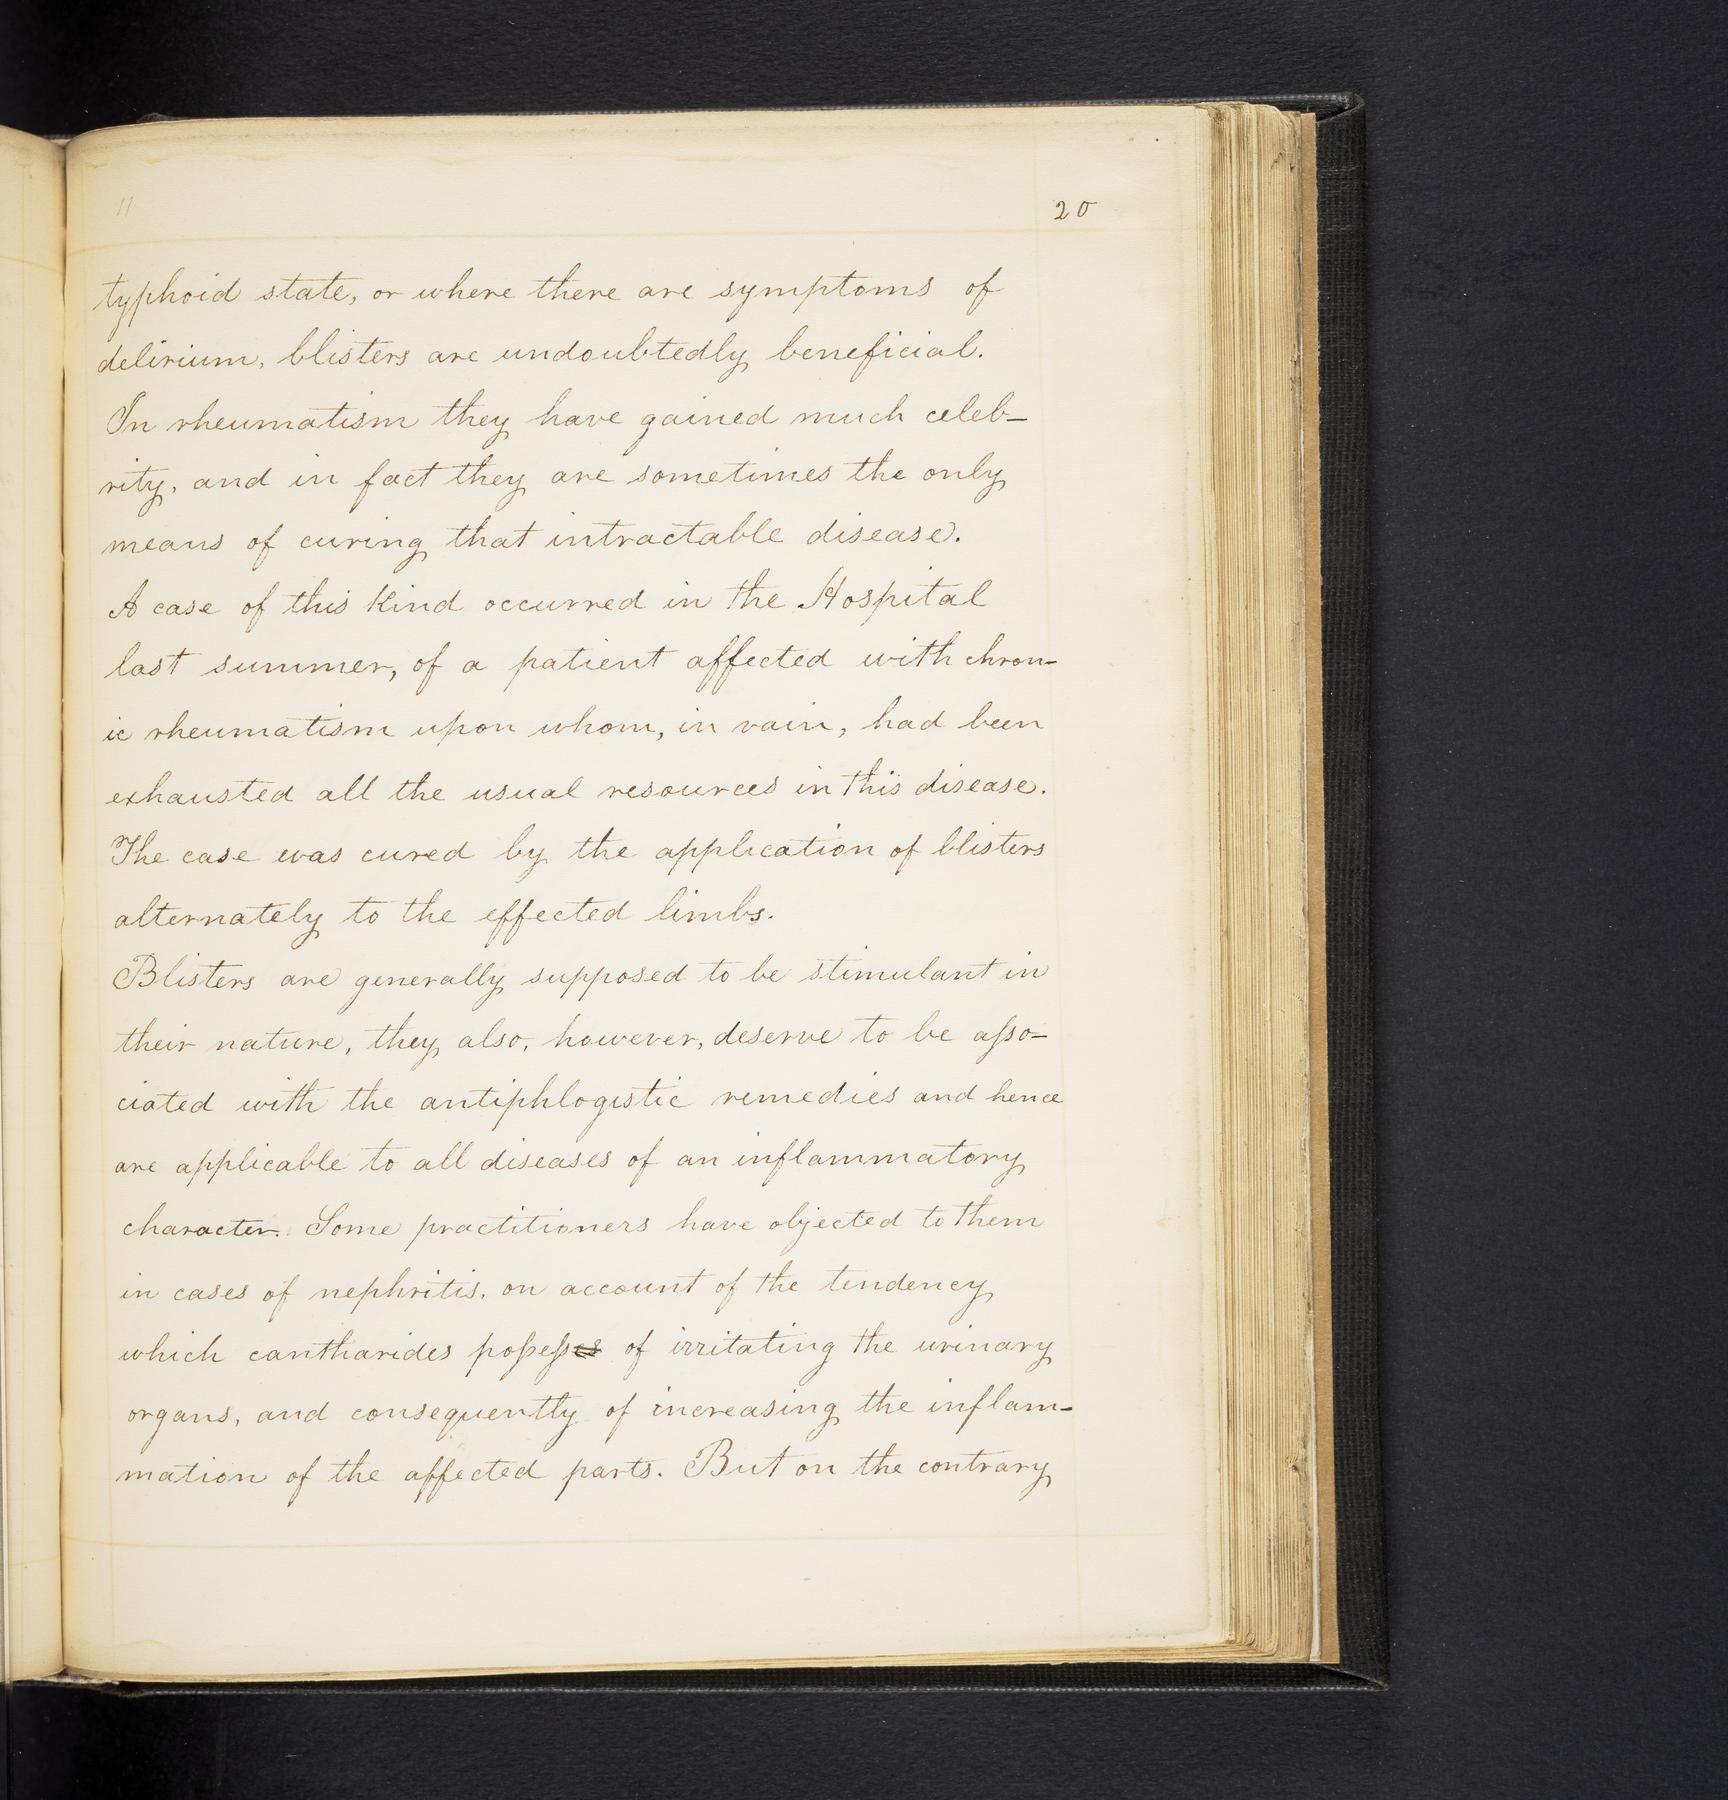 11
20
typhoid state, or where there are symptoms of
delirium, blisters are undoubtedly beneficial.
In rheumatism they have gained much celeb-
rity, and in fact they are sometimes the only
means of curing that intractable disease.
A case of this kind occurred in the Hospital
last summer, of a patient affected with chron-
ic rheumatism upon whom, in vain, had been
exhausted all the usual resources in this disease.
The case was cured by the application of blisters
alternately to the effected limbs.
Blisters are generally supposed to be stimulant in
their nature, they also, however, deserve to be aſso-
ciated with the antiphlogistic remedies and hence
are applicable to all diseases of an inflammatory
character. Some practitioners have objected to them
in cases of nephritis, on account of the tendency
which cantharides poſseſses of irritating the urinary
organs, and consequently of increasing the inflam-
mation of the affected parts. But on the contrary